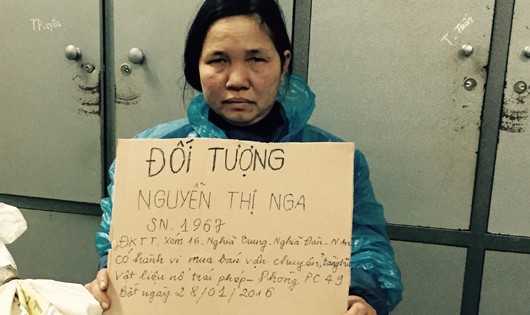 TP.uyến
T. Tuấn
ĐỐI TƯỢNG
NGUYỄN THỊ NGA
SN. 1967
ĐKTT, Xóm 16. Nghĩa Trung - Nghĩa Đàn - N.An
Có hành vi mua bán vận chuyển, tàng trữ
Vật liệu nổ trái phép - Phòng PC 49
Bắt ngày 28/01/2016